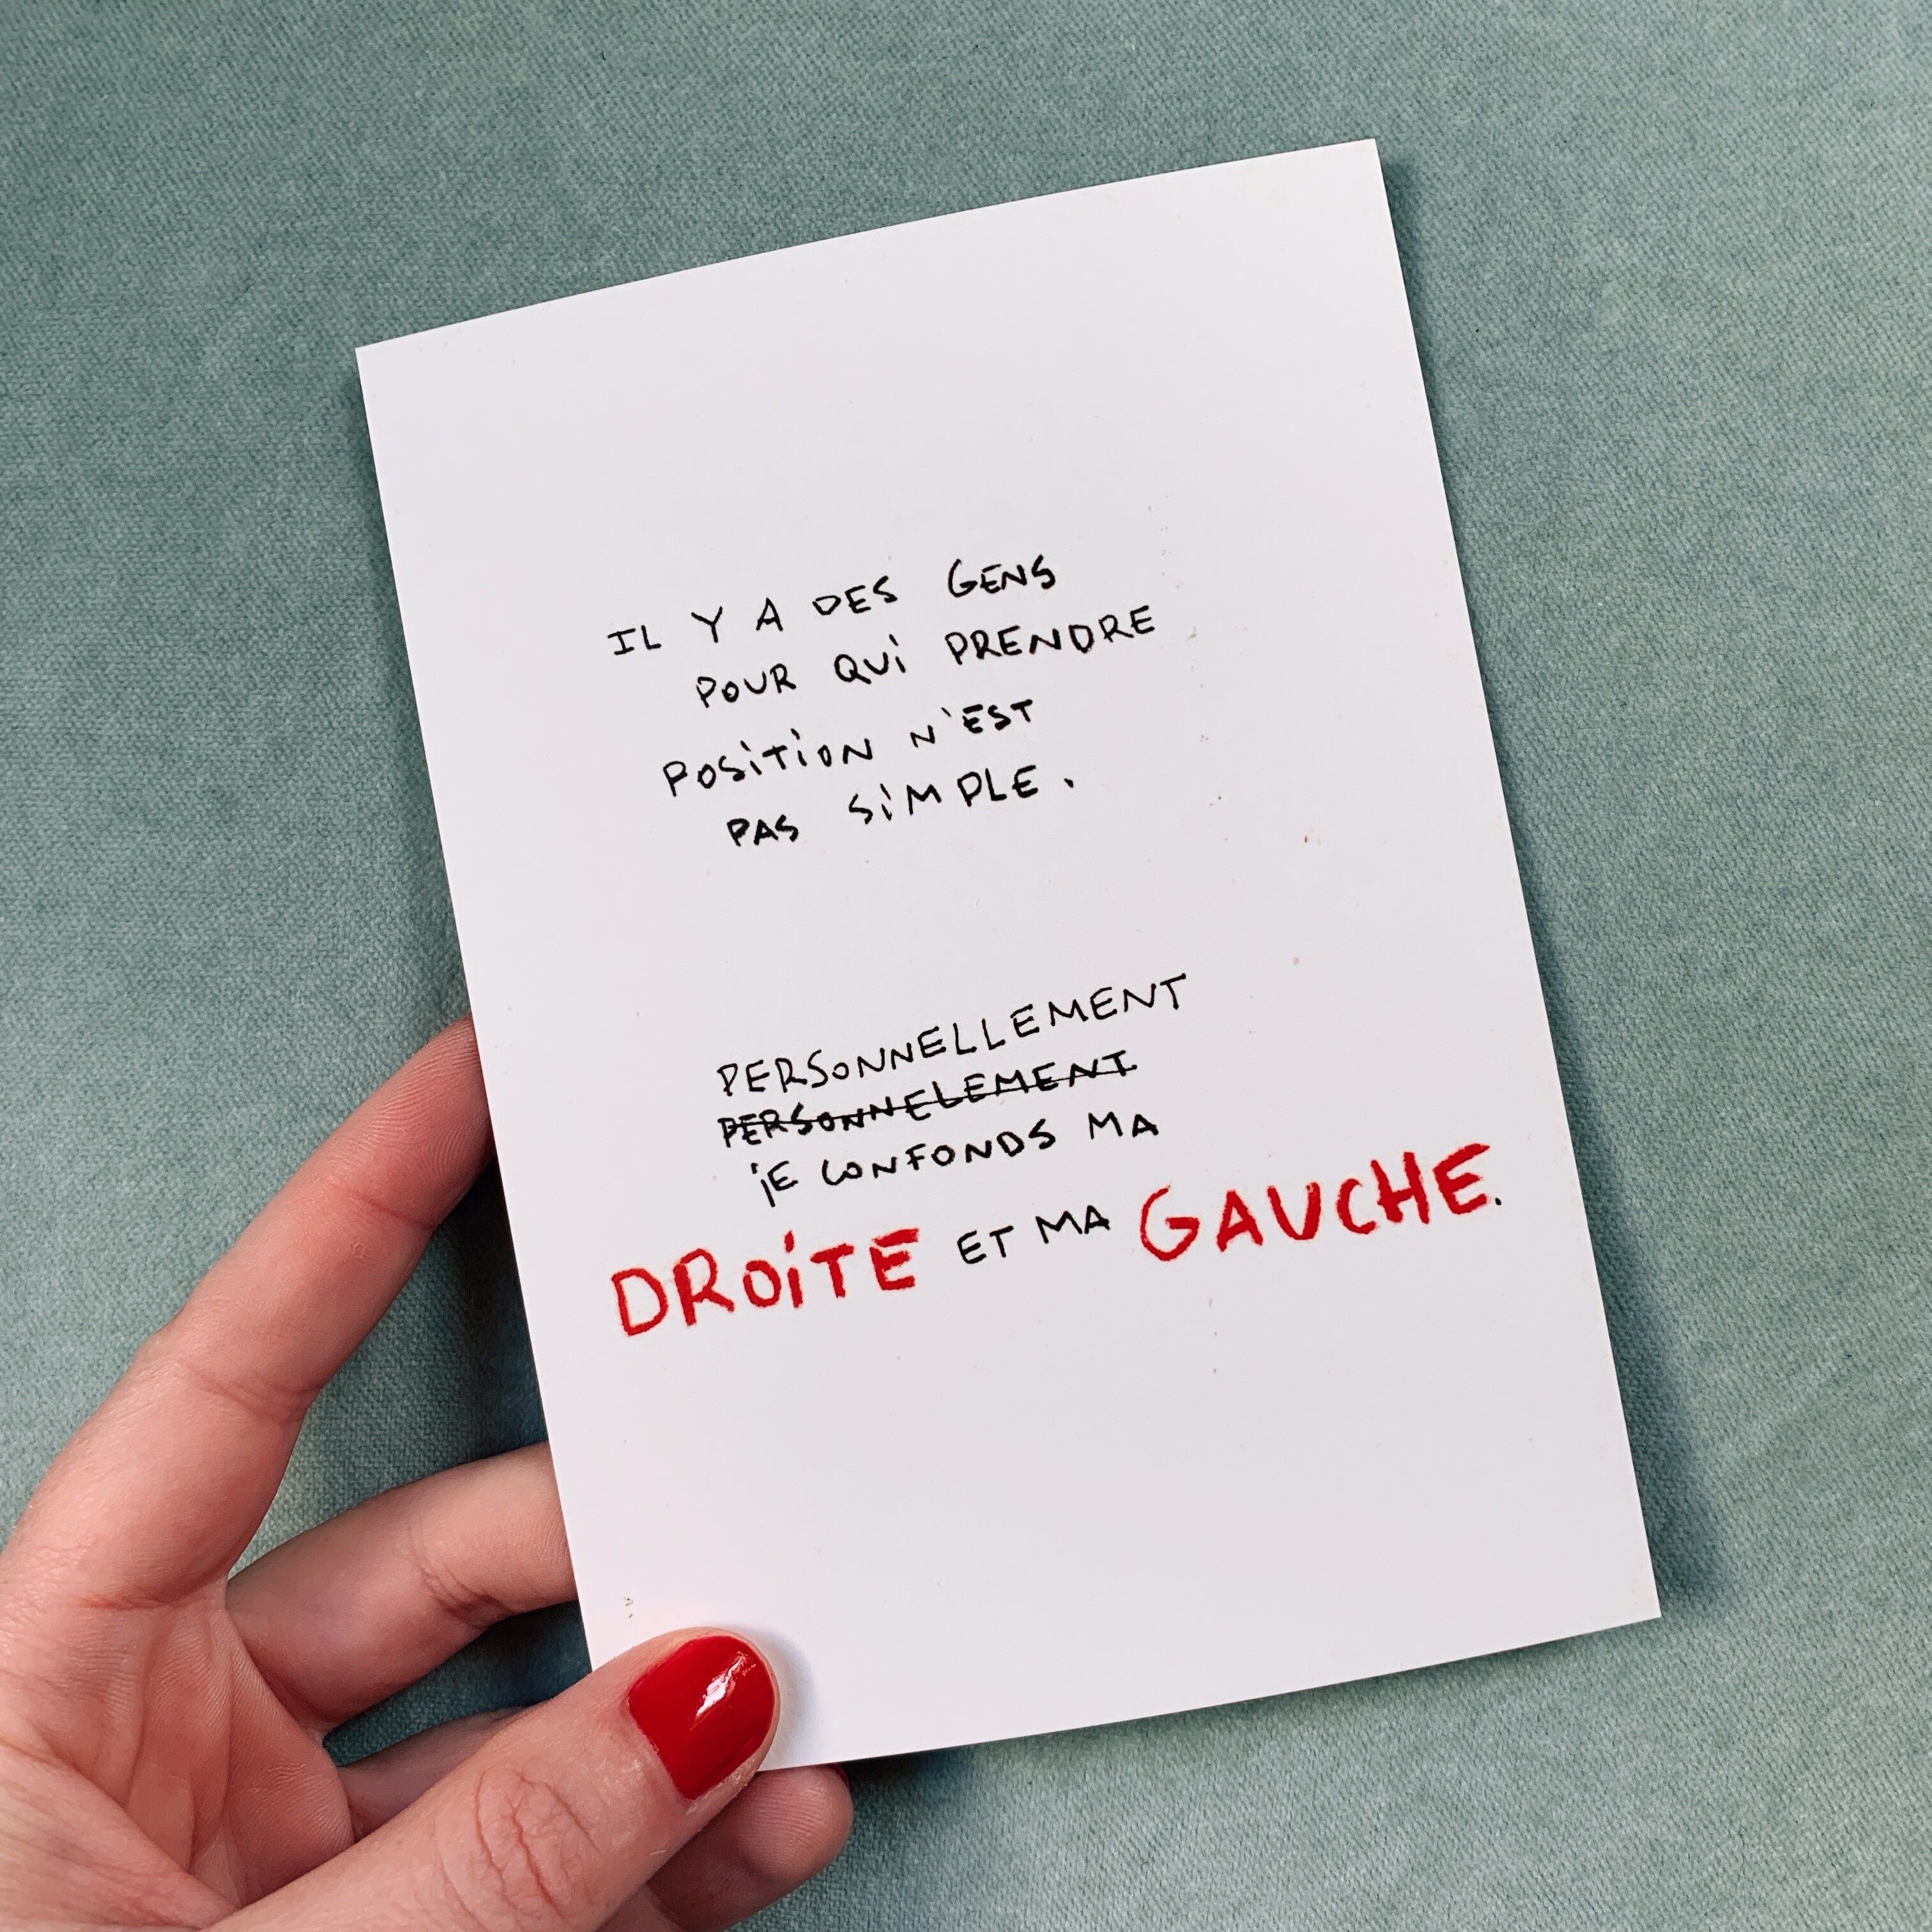 IL Y A DES GENS
POUR QUi PRENDRE
POSiTiON N'EST
PAS SiMPLE.
PERSONNELLEMENT
PERSONNELEMENT
jE CONFONDS MA
DROiTE ET MA GAUCHE.